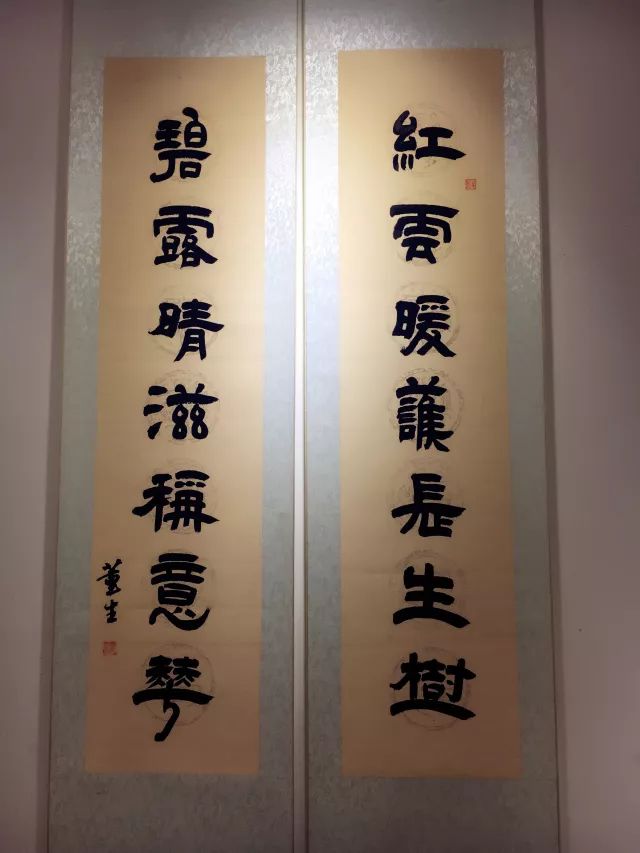 紅雲暖護長生樹
碧露晴滋稱意華
董生